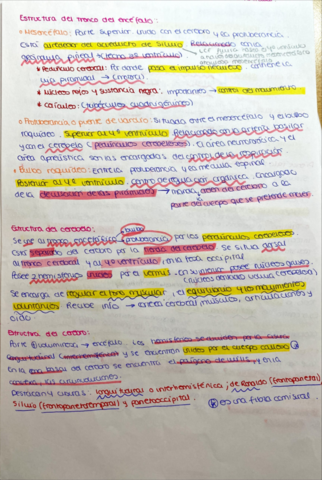 Estructura del tronco del encéfalo:
• Mesencéfalo: Parte superior, unido con el cerebro y la protuberancia.
Está alrededor del acueducto de Silvio. Relacionado con la
glándula pineal y techo del 3º ventrículo
• Pedúnculo cerebral: Por donde pasa el impulso nervioso
vía piramidal → (motora)
• Núcleos rojos y sustancia negra: importantes → control del movimiento
• Colículos: (tubérculos cuadrigéminos)
• Protuberancia o puente de varolio: Situado entre el mesencéfalo y el bulbo
raquídeo. Superior al 4º ventrículo. Relacionado con la arteria basilar
y con el cerebelo (pedúnculos cerebelosos). El área neumotáxica y el
área apneústica son las encargadas del control de la respiración.
• Bulbo raquídeo: Entre la protuberancia y la médula espinal
Posterior al 4º ventrículo. Centro de regulación orgánica. Encargado
de la decusación de las pirámides → del cerebro a la
parte del cuerpo que se pretende mover.
Estructura del cerebelo:
Se une al tronco encefálico protuberancia por los pedúnculos cerebelosos
Está separado del cerebro por la tienda del cerebelo. Se sitúa dorsal
al tronco cerebral y al 4º ventrículo, en la fosa occipital
Posee 2 hemisferios unidos por el vermis. En su interior posee núcleos grises
Se encarga de regular el tono muscular, el equilibrio y los movimientos
voluntarios. Recibe info → corteza cerebral (músculos, articulaciones y
oído
Estructura del cerebro:
y se encuentran unidos por el cuerpo calloso
En la base del cerebro se encuentra el polígono de willis, y en la
las circunvoluciones.
Destacan 4 cisuras: longitudinal o interhemisférica; de Rolando (frontoparietal)
Silvio (frontoparietotemporal) y parietooccipital.
es una fibra comisural.